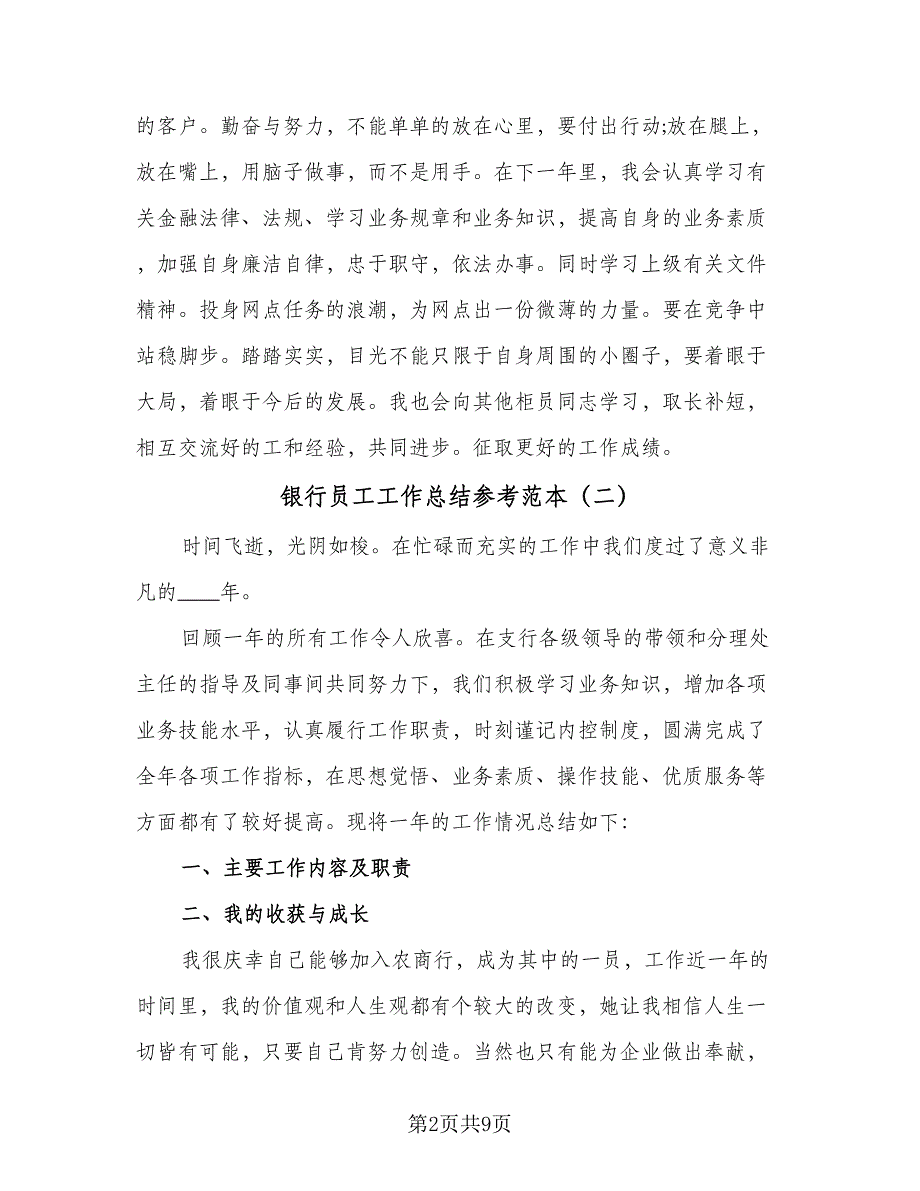 的客户。勤奋与努力，不能单单的放在心里，要付出行动;放在腿上，
放在嘴上，用脑子做事，而不是用手。在下一年里，我会认真学习有
关金融法律、法规、学习业务规章和业务知识，提高自身的业务素质
，加强自身廉洁自律，忠于职守，依法办事。同时学习上级有关文件
精神。投身网点任务的浪潮，为网点出一份微薄的力量。要在竞争中
站稳脚步。踏踏实实，目光不能只限于自身周围的小圈子，要着眼于
大局，着眼于今后的发展。我也会向其他柜员同志学习，取长补短，
相互交流好的工和经验，共同进步。征取更好的工作成绩。
银行员工工作总结参考范本（二）
时间飞逝，光阴如梭。在忙碌而充实的工作中我们度过了意义非
凡的____年。
回顾一年的所有工作令人欣喜。在支行各级领导的带领和分理处
主任的指导及同事间共同努力下，我们积极学习业务知识，增加各项
业务技能水平，认真履行工作职责，时刻谨记内控制度，圆满完成了
全年各项工作指标，在思想觉悟、业务素质、操作技能、优质服务等
方面都有了较好提高。现将一年的工作情况总结如下：
一、主要工作内容及职责
二、我的收获与成长
我很庆幸自己能够加入农商行，成为其中的一员，工作近一年的
时间里，我的价值观和人生观都有个较大的改变，她让我相信人生一
切皆有可能，只要自己肯努力创造。当然也只有能为企业做出奉献，
第2页共9页